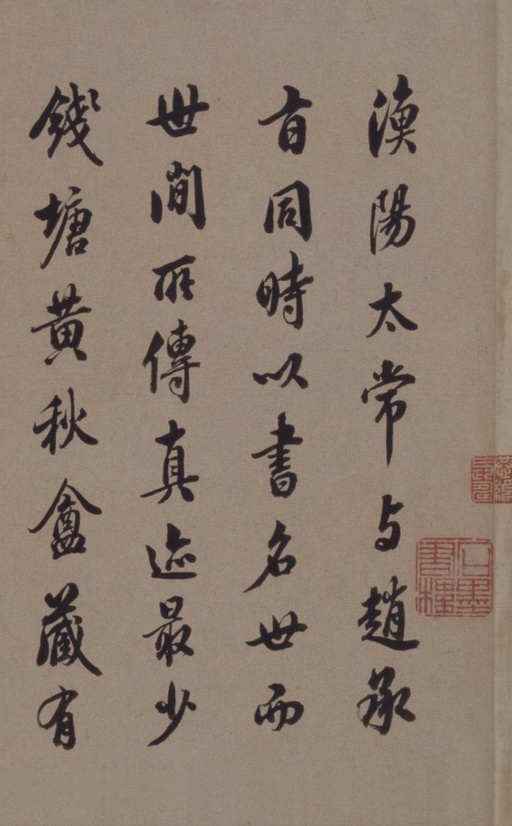 渔陽太常与趙承
旨同時以書名世而
世间所傳真迹最少
錢塘黄秋盦藏有
石墨書樓